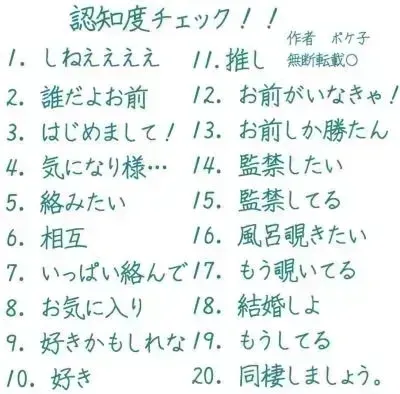 認知度チェック！！
作者　ポケ子
無断転載〇
1. しねええええ
2. 誰だよお前
3. はじめまして！
4. 気になり様…
5. 絡みたい
6. 相互
7. いっぱい絡んで
8. お気に入り
9. 好きかもしれな
10. 好き
11. 推し
12. お前がいなきゃ！
13. お前しか勝たん
14. 監禁したい
15. 監禁してる
16. 風呂覗きたい
17. もう覗いてる
18. 結婚しよ
19. もうしてる
20. 同棲しましょう。